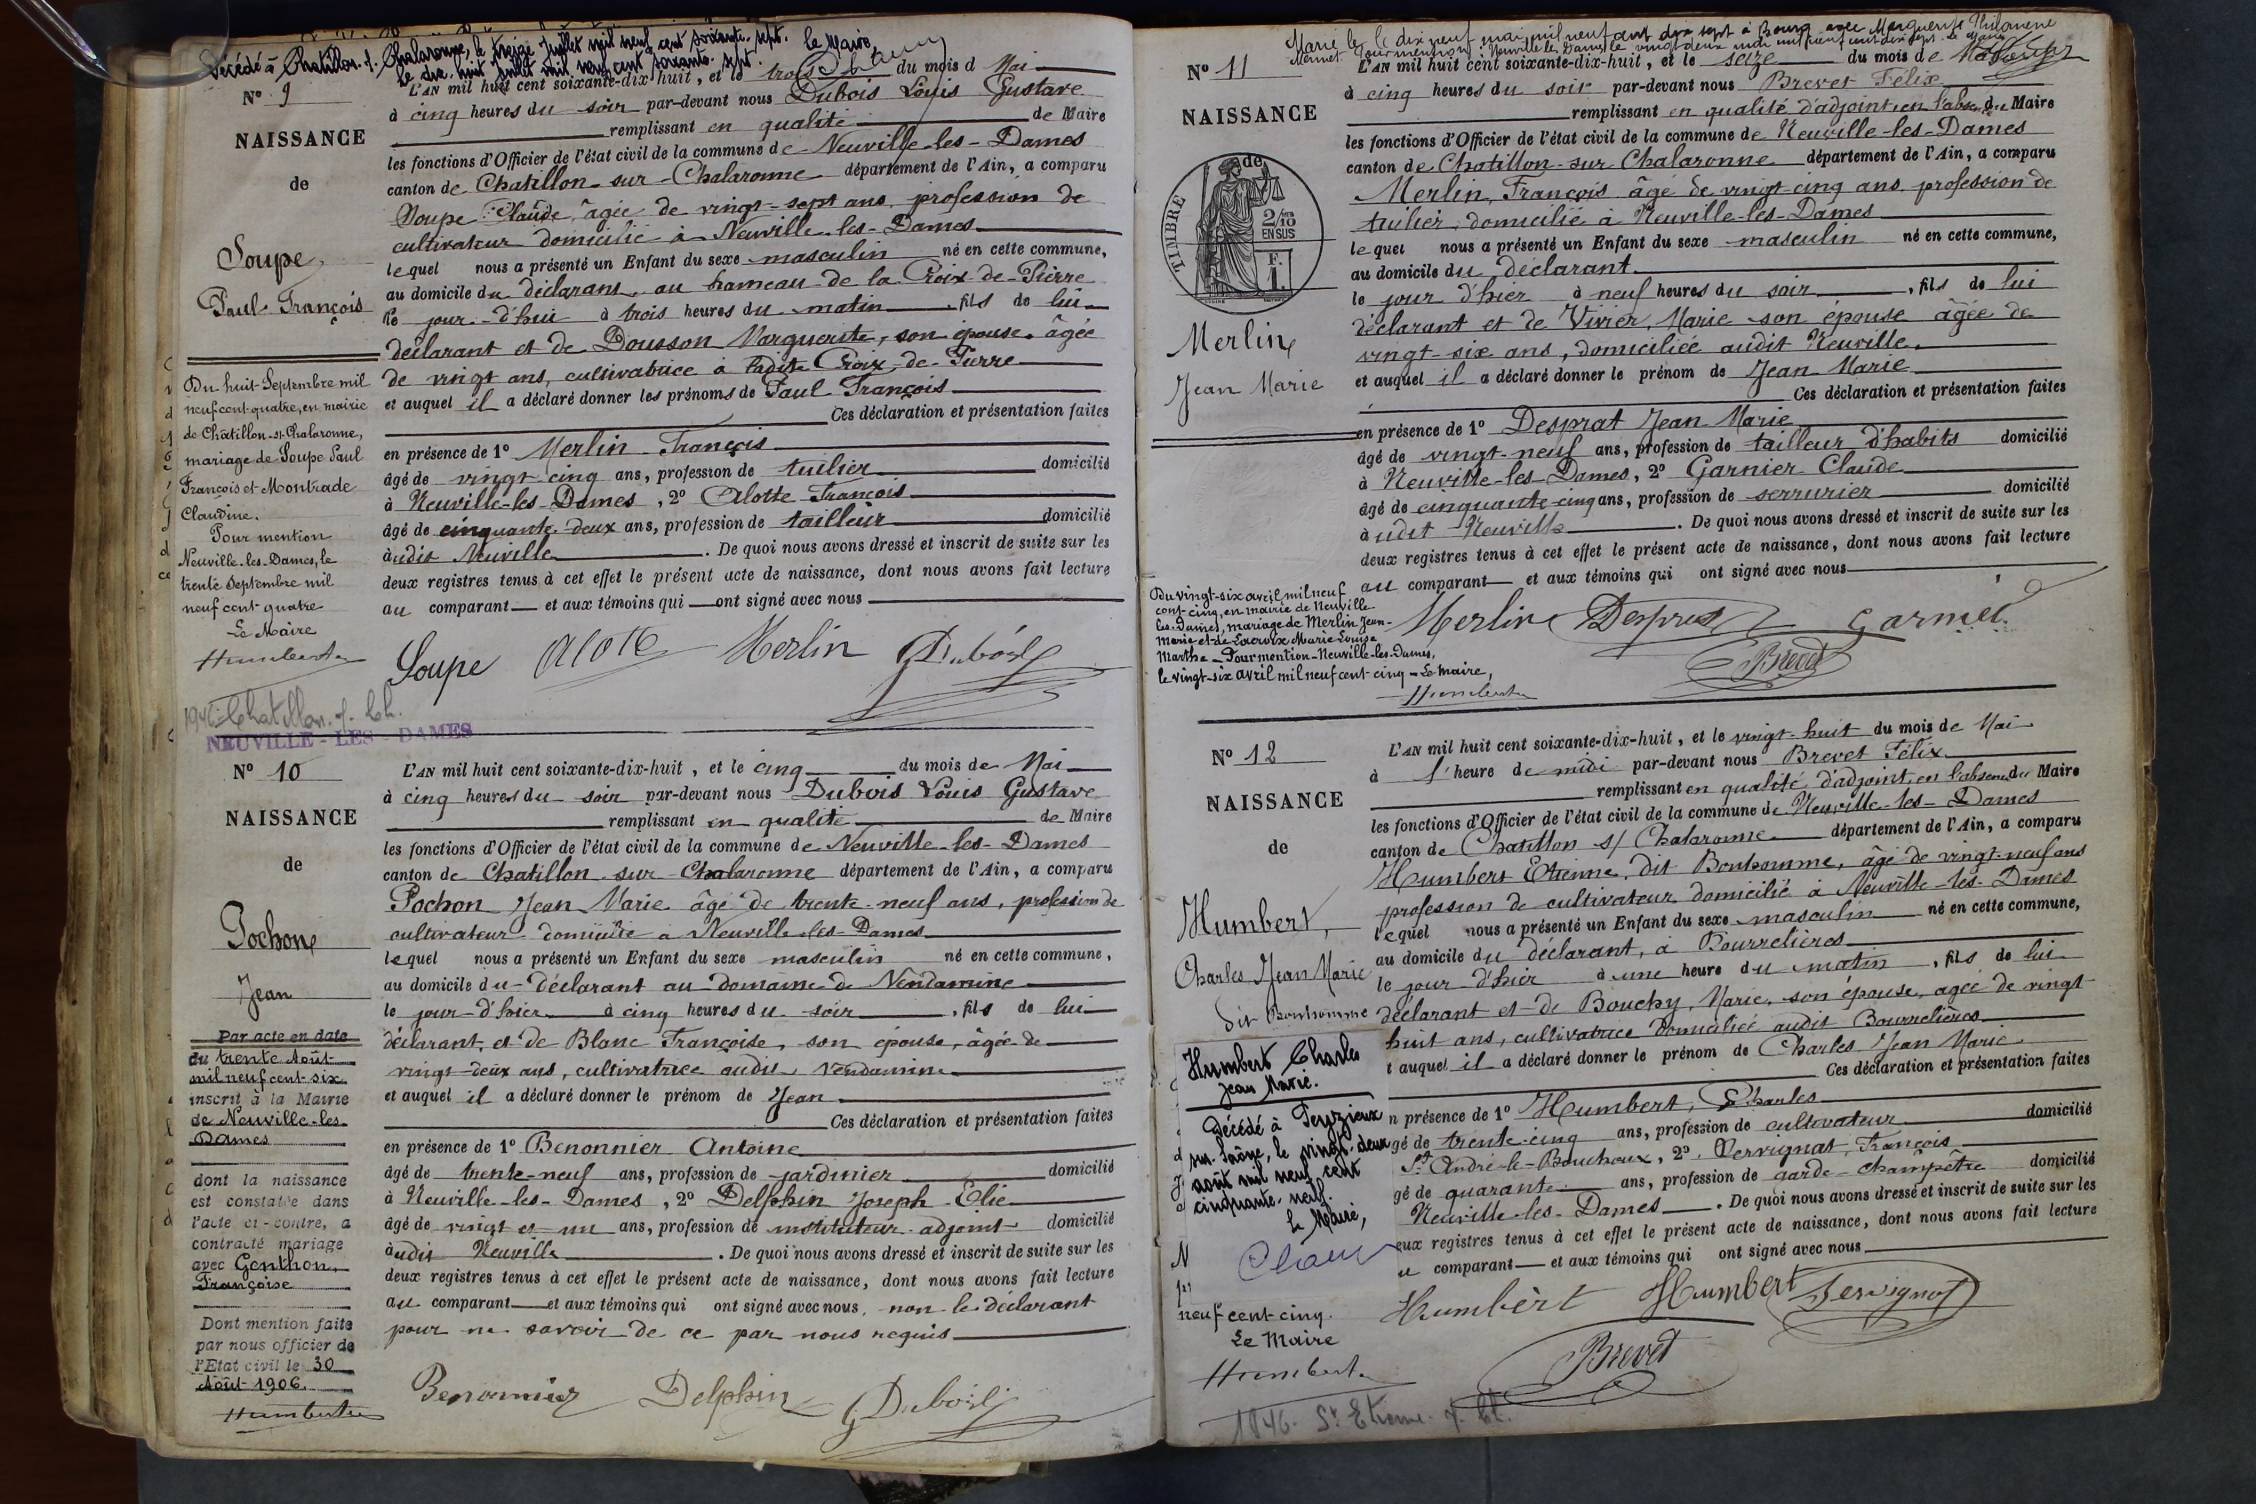 Décédé à Chatillon s. Chalaronne, le treize Juillet mil neuf cent soixante-sept. le Maire
le dix huit Juillet mil neuf cent soixante sept.
N° 9
NAISSANCE
de
Soupe
Paul François
Du huit Septembre mil
neuf cent quatre, en mairie
de Châtillon-s-Chalaronne,
mariage de Soupe Paul
François et Montrade
Claudine.
Pour mention
Neuville-les-Dames, le
trente Septembre mil
neuf cent quatre
Le Maire
Humbert
L'AN mil huit cent soixante-dix-huit, et le trois du mois d Mai
à cinq heures du soir par-devant nous Dubois Louis Gustave
remplissant en qualité de Maire
les fonctions d'Officier de l'état civil de la commune de Neuville-les-Dames
canton de Chatillon-sur-Chalaronne département de l'Ain, a comparu
Soupe Claude, âgée de vingt-sept ans, profession de
cultivateur domicilié à Neuville-les-Dames
lequel nous a présenté un Enfant du sexe masculin né en cette commune,
au domicile du déclarant, au hameau de la Croix-de-Pierre
le jour-d'hui à trois heures du matin, fils de lui
déclarant et de Dousson Marguerite, son épouse, âgée
de vingt ans, cultivatrice à ladite Croix-de-Pierre
et auquel il a déclaré donner les prénoms de Paul François
Ces déclaration et présentation faites
en présence de 1° Merlin François
âgé de vingt cinq ans, profession de tuilier domicilié
à Neuville-les-Dames, 2° Alotte François
âgé de cinquante-deux ans, profession de tailleur domicilié
àudit Neuville. De quoi nous avons dressé et inscrit de suite sur les
deux registres tenus à cet effet le présent acte de naissance, dont nous avons fait lecture
au comparant et aux témoins qui ont signé avec nous
Soupe Alote Merlin G Dubois
1946 Chatillon. s. Ch.
NEUVILLE-LES-DAMES
N° 10
NAISSANCE
de
Pochon
Jean
Par acte en date
du trente Août
mil neuf cent-six
inscrit à la Mairie
de Neuville-les-
Dames
dont la naissance
est constatée dans
l'acte ci-contre, a
contracté mariage
avec Genthon
Françoise
Dont mention faite
par nous officier de
l'Etat civil le 30
Août 1906.
Humbert
L'AN mil huit cent soixante-dix-huit, et le cinq du mois de Mai
à cinq heures du soir par-devant nous Dubois Louis Gustave
remplissant en qualité de Maire
les fonctions d'Officier de l'état civil de la commune de Neuville-les-Dames
canton de Chatillon-sur-Chalaronne département de l'Ain, a comparu
Pochon Jean Marie âgé de trente-neuf ans, profession de
cultivateur domicilié à Neuville-les-Dames
lequel nous a présenté un Enfant du sexe masculin né en cette commune,
au domicile du déclarant au domaine de Vendamine
le jour-d'hier à cinq heures du soir, fils de lui
déclarant, et de Blanc Françoise, son épouse, âgée de
vingt-deux ans, cultivatrice audit Vendamine
et auquel il a déclaré donner le prénom de Jean
Ces déclaration et présentation faites
en présence de 1° Benonnier Antoine
âgé de trente-neuf ans, profession de jardinier domicilié
à Neuville-les-Dames, 2° Delphin Joseph Elie
âgé de vingt et un ans, profession de instituteur-adjoint domicilié
àudit Neuville. De quoi nous avons dressé et inscrit de suite sur les
deux registres tenus à cet effet le présent acte de naissance, dont nous avons fait lecture
au comparant et aux témoins qui ont signé avec nous, non le déclarant
pour ne savoir de ce par nous requis
Benonnier Delphin G Dubois
Marié le dix neuf mai mil neuf cent dix sept à Bourg avec Marguerite Philomène
Mermet. Pour mention. Neuville les Dames le vingt deux mai mil neuf cent dix sept. Le Maire
N° 11
NAISSANCE
de
TIMBRE
2/10 EN SUS
F. 1.
Merlin
Jean Marie
L'AN mil huit cent soixante-dix-huit, et le seize du mois de Mai
à cinq heures du soir par-devant nous Brevet Félix
remplissant en qualité d'adjoint en l'absence du Maire
les fonctions d'Officier de l'état civil de la commune de Neuville-les-Dames
canton de Chatillon-sur-Chalaronne département de l'Ain, a comparu
Merlin, François âgé de vingt cinq ans profession de
tuilier, domicilié à Neuville-les-Dames
lequel nous a présenté un Enfant du sexe masculin né en cette commune,
au domicile du déclarant
le jour d'hier à neuf heures du soir, fils de lui
déclarant et de Vivier, Marie son épouse âgée de
vingt-six ans, domiciliée audit Neuville.
et auquel il a déclaré donner le prénom de Jean Marie
Ces déclaration et présentation faites
en présence de 1° Desprat Jean Marie
âgé de vingt-neuf ans, profession de tailleur d'habits domicilié
à Neuville-les-Dames, 2° Garnier Claude
âgé de cinquante-cinq ans, profession de serrurier domicilié
àudit Neuville. De quoi nous avons dressé et inscrit de suite sur les
deux registres tenus à cet effet le présent acte de naissance, dont nous avons fait lecture
au comparant et aux témoins qui ont signé avec nous
Du vingt-six avril mil neuf
cent-cinq, en mairie de Neuville
les-Dames, mariage de Merlin Jean-
Marie et de Lacroix Marie Louise
Marthe - Pour mention - Neuville-les-Dames,
le vingt-six avril mil neuf cent-cinq - Le Maire,
Humbert
Merlin Desprat Garnier
Brevet
N° 12
NAISSANCE
de
Humbert,
Charles Jean Marie
dit Bonhomme
Humbert Charles
Jean Marie.
Décédé à Peyzieux
sur-Saône, le vingt-deux
août mil neuf cent
cinquante-neuf.
le Maire,
neuf cent-cinq.
Le Maire
Humbert
L'AN mil huit cent soixante-dix-huit, et le vingt-huit du mois de Mai
à l'heure de midi par-devant nous Brevet Félix
remplissant en qualité d'adjoint, en l'absence du Maire
les fonctions d'Officier de l'état civil de la commune de Neuville-les-Dames
canton de Chatillon s/ Chalaronne département de l'Ain, a comparu
Humbert Etienne, dit Bonhomme, âgé de vingt-neuf ans
profession de cultivateur domicilié à Neuville-les-Dames
lequel nous a présenté un Enfant du sexe masculin né en cette commune,
au domicile du déclarant, à Bourrelières
le jour-d'hier à une heure du matin, fils de lui
déclarant et de Bouchy, Marie, son épouse, agée de vingt-
huit ans, cultivatrice domiciliée audit Bourrelières
t auquel il a déclaré donner le prénom de Charles Jean Marie
Ces déclaration et présentation faites
n présence de 1° Humbert, Charles
gé de trente-cinq ans, profession de cultivateur domicilié
St André-le-Bouchoux, 2° Pervignat, François
gé de quarante ans, profession de garde-champêtre domicilié
Neuville-les-Dames. De quoi nous avons dressé et inscrit de suite sur les
eux registres tenus à cet effet le présent acte de naissance, dont nous avons fait lecture
u comparant et aux témoins qui ont signé avec nous
Humbert Humbert Pervignat
Brevet